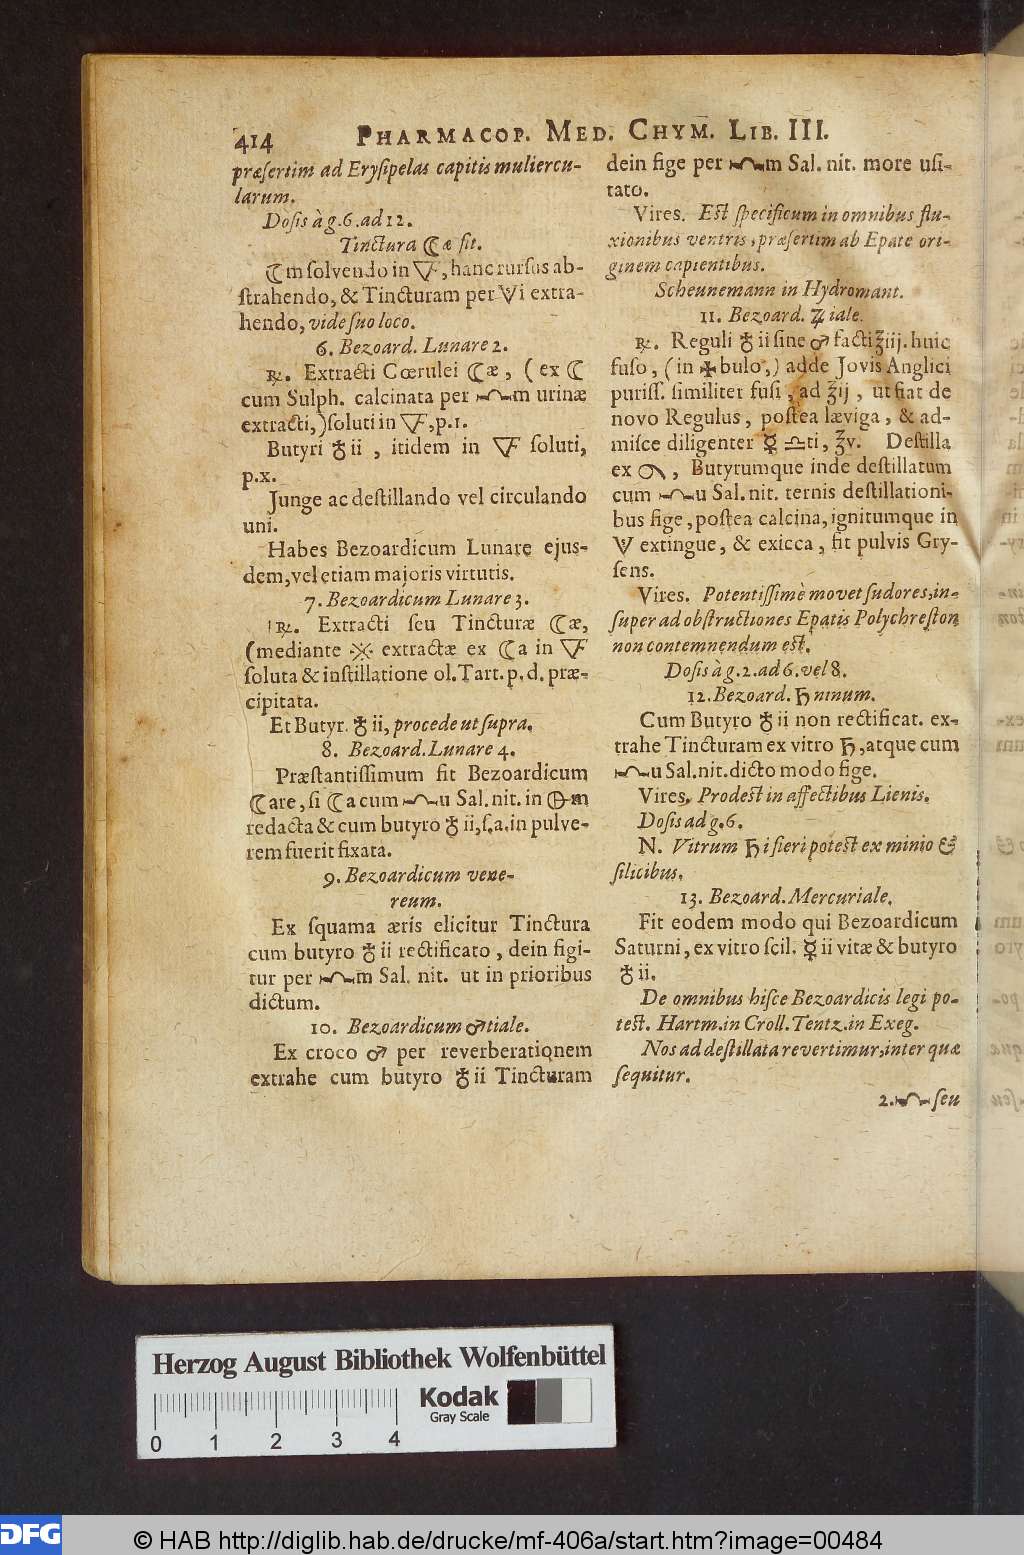 414 PHARMACOP. MED. CHYM. LIB. III.
præſertim ad Eryſipelas capitis muliercu-
larum.
Doſis à g. 6. ad 12.
Tinctura ☾æ fit.
☾m ſolvendo in 🜆, hanc rurſus ab-
ſtrahendo, & Tincturam per Vi extra-
hendo, vide ſuo loco.
6. Bezoard. Lunare 2.
℞. Extracti Cœrulei ☾æ, (ex ☾
cum Sulph. calcinata per m urinæ
extracti,) ſoluti in 🜆, p. 1.
Butyri ♁ii, itidem in 🜆 ſoluti,
p. x.
Junge ac deſtillando vel circulando
uni.
Habes Bezoardicum Lunare ejus-
dem, vel etiam majoris virtutis.
7. Bezoardicum Lunare 3.
℞. Extracti ſeu Tincturæ ☾æ,
(mediante ※ extractæ ex ☾a in 🜆
ſoluta & inſtillatione ol. Tart. p. d. præ-
cipitata.
Et Butyr. ♁ii, procede ut ſupra.
8. Bezoard. Lunare 4.
Præſtantiſſimum fit Bezoardicum
☾are, ſi ☾a cum u Sal. nit. in m
redacta & cum butyro ♁ii, ſ. a. in pulve-
rem fuerit fixata.
9. Bezoardicum vene-
reum.
Ex ſquama æris elicitur Tinctura
cum butyro ♁ii rectificato, dein figi-
tur per m Sal. nit. ut in prioribus
dictum.
10. Bezoardicum ♂tiale.
Ex croco ♂ per reverberationem
extrahe cum butyro ♁ii Tincturam
dein fige per m Sal. nit. more uſi-
tato.
Vires. Eſt ſpecificum in omnibus flu-
xionibus ventris, præſertim ab Epate ori-
ginem capientibus.
Scheunemann in Hydromant.
11. Bezoard. ♃iale.
℞. Reguli ♁ii ſine ♂ facti ℥iij. huic
fuſo, (in ✠bulo,) adde Jovis Anglici
puriſſ. ſimiliter fuſi, ad ℥ij, ut fiat de
novo Regulus, poſtea læviga, & ad-
miſce diligenter ☿ ♎ti, ℥v. Deſtilla
ex, Butyrumque inde deſtillatum
cum u Sal. nit. ternis deſtillationi-
bus fige, poſtea calcina, ignitumque in
V extingue, & exicca, fit pulvis Gry-
ſens.
Vires. Potentiſſimè movet ſudores, in-
ſuper ad obſtructiones Epatis Polychreſton
non contemnendum eſt.
Doſis à g. 2. ad 6. vel 8.
12. Bezoard. ♄ninum.
Cum Butyro ♁ii non rectificat. ex-
trahe Tincturam ex vitro ♄, atque cum
u Sal. nit. dicto modo fige.
Vires. Prodeſt in affectibus Lienis.
Doſis ad g. 6.
N. Vitrum ♄i fieri poteſt ex minio &
ſilicibus.
13. Bezoard. Mercuriale.
Fit eodem modo qui Bezoardicum
Saturni, ex vitro ſcil. ☿ii vitæ & butyro
♁ii.
De omnibus hiſce Bezoardicis legi po-
teſt. Hartm. in Croll. Tentz. in Exeg.
Nos ad deſtillata revertimur, inter quæ
ſequitur.
2. ſeu
Herzog August Bibliothek Wolfenbüttel
Kodak
Gray Scale
0 1 2 3 4
DFG © HAB http://diglib.hab.de/drucke/mf-406a/start.htm?image=00484